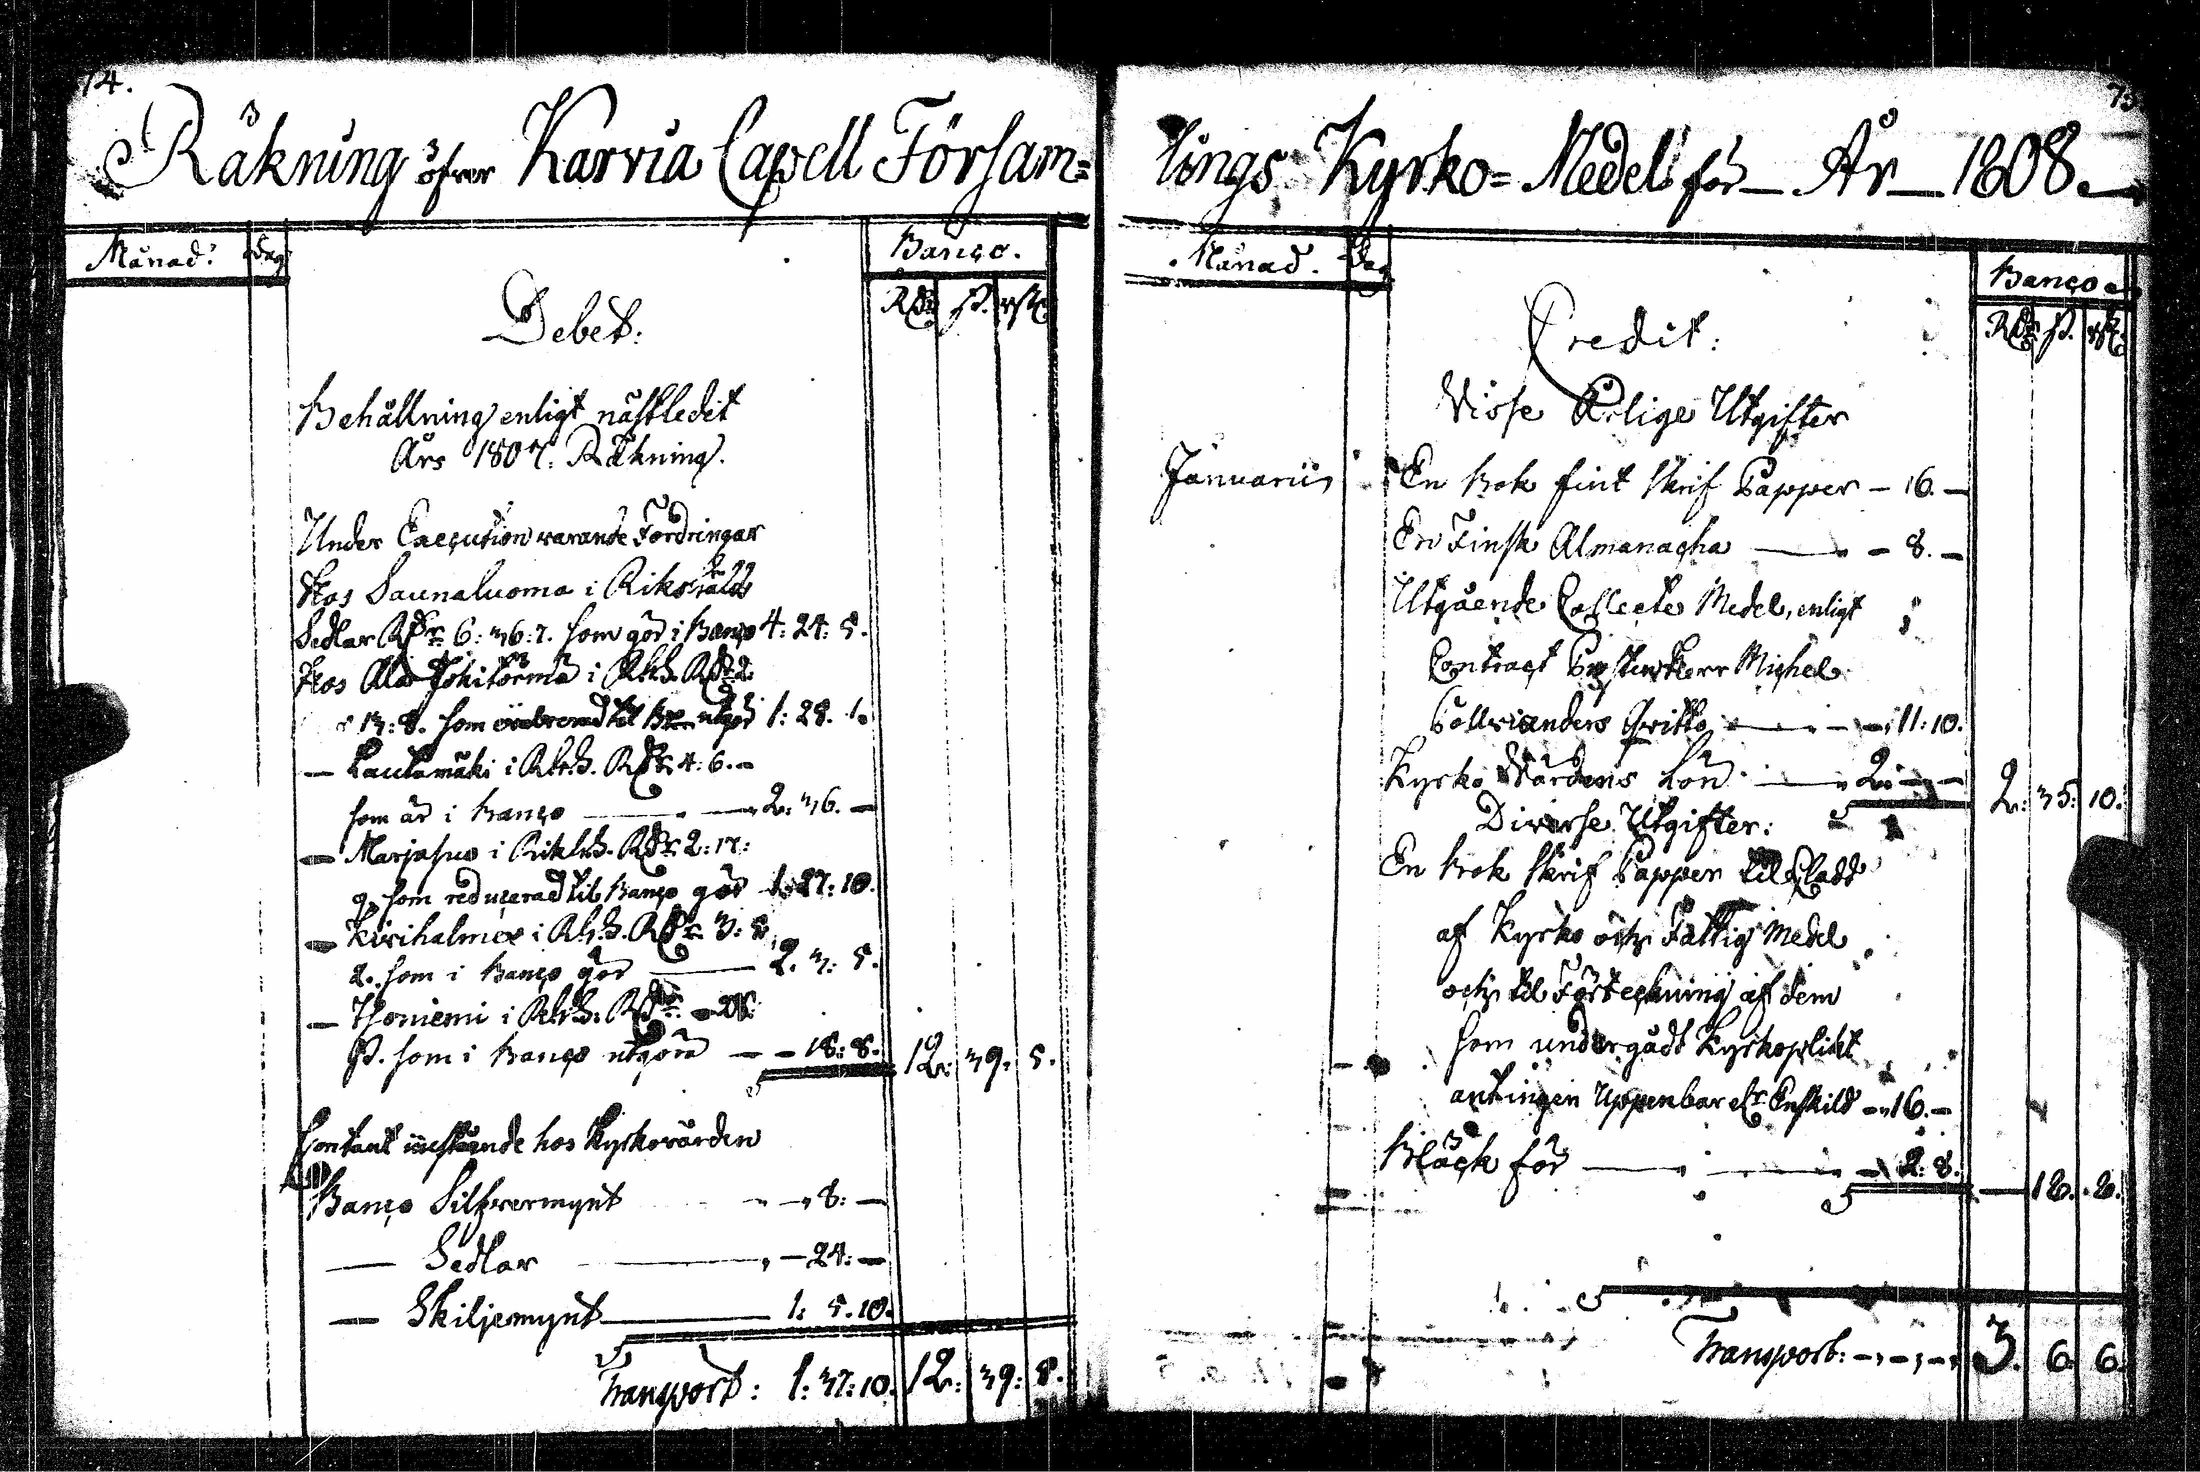 74.
Räkning öfver Karvia Capell Försams=
Månad. Dag. Banço.
Rdr ß. rst.
Debet:
Behållning enligt nästledit
Års 1807. Räkning.
Under Execution varande Fordringar
Hos Saunaluoma i Riksgälds
Sedlar Rdr 6: 36: 7. som gör i Banço 4: 24: 5.
Hos Jokitörmä i Rdr 2:
13: 8. som til Bco utgör 1: 28. 1.
— Lautamäki i Rdr 4: 6. —
som är i Banço — 2: 36. —
— Marjasuo i Rdr 2: 17:
9. som reducerad til Banço gör 1: 27: 10.
— Kirihalme i Rdr 3: 5:
2. som i Banço gör — 2. 3: 5.
— Thoniemi i Rdr — 28:
ß. som i Banço utgöra — — 18: 8. 12: 39: 5.
Contant innestående hos Kyrkovärden
Banço Silfvermynt — 8: —
— Sedlar — 24: —
— Skiljemynt 1: 5. 10.
Transport: 1: 37: 10. 12: 39: 8.
75
lings Kyrko=Medel för — År — 1808.
Månad. Dag Banço
Rdr ß. rst.
Credit:
Visse Årlige Utgifter
Januarii En Bok fint Skrif Papper — 16. —
En Finsk Almanacha — 8. —
Utgående Collecte Medel, enligt
Contract Michel
Pollvianders Qvitto — 11: 10.
Kyrko Värdens Lön — 2: — — 2: 35: 10.
Diverse Utgifter:
En Bok Skrif Papper til Cladd
af Kyrko och Fattig Medel
och til Förteckning af dem
som undergådt Kyrkoplikt
antingen Uppenbar elr Enskild — 16. —
Bläck för — 2: 8.
— 18. 8.
Transport: 3. 6. 6.